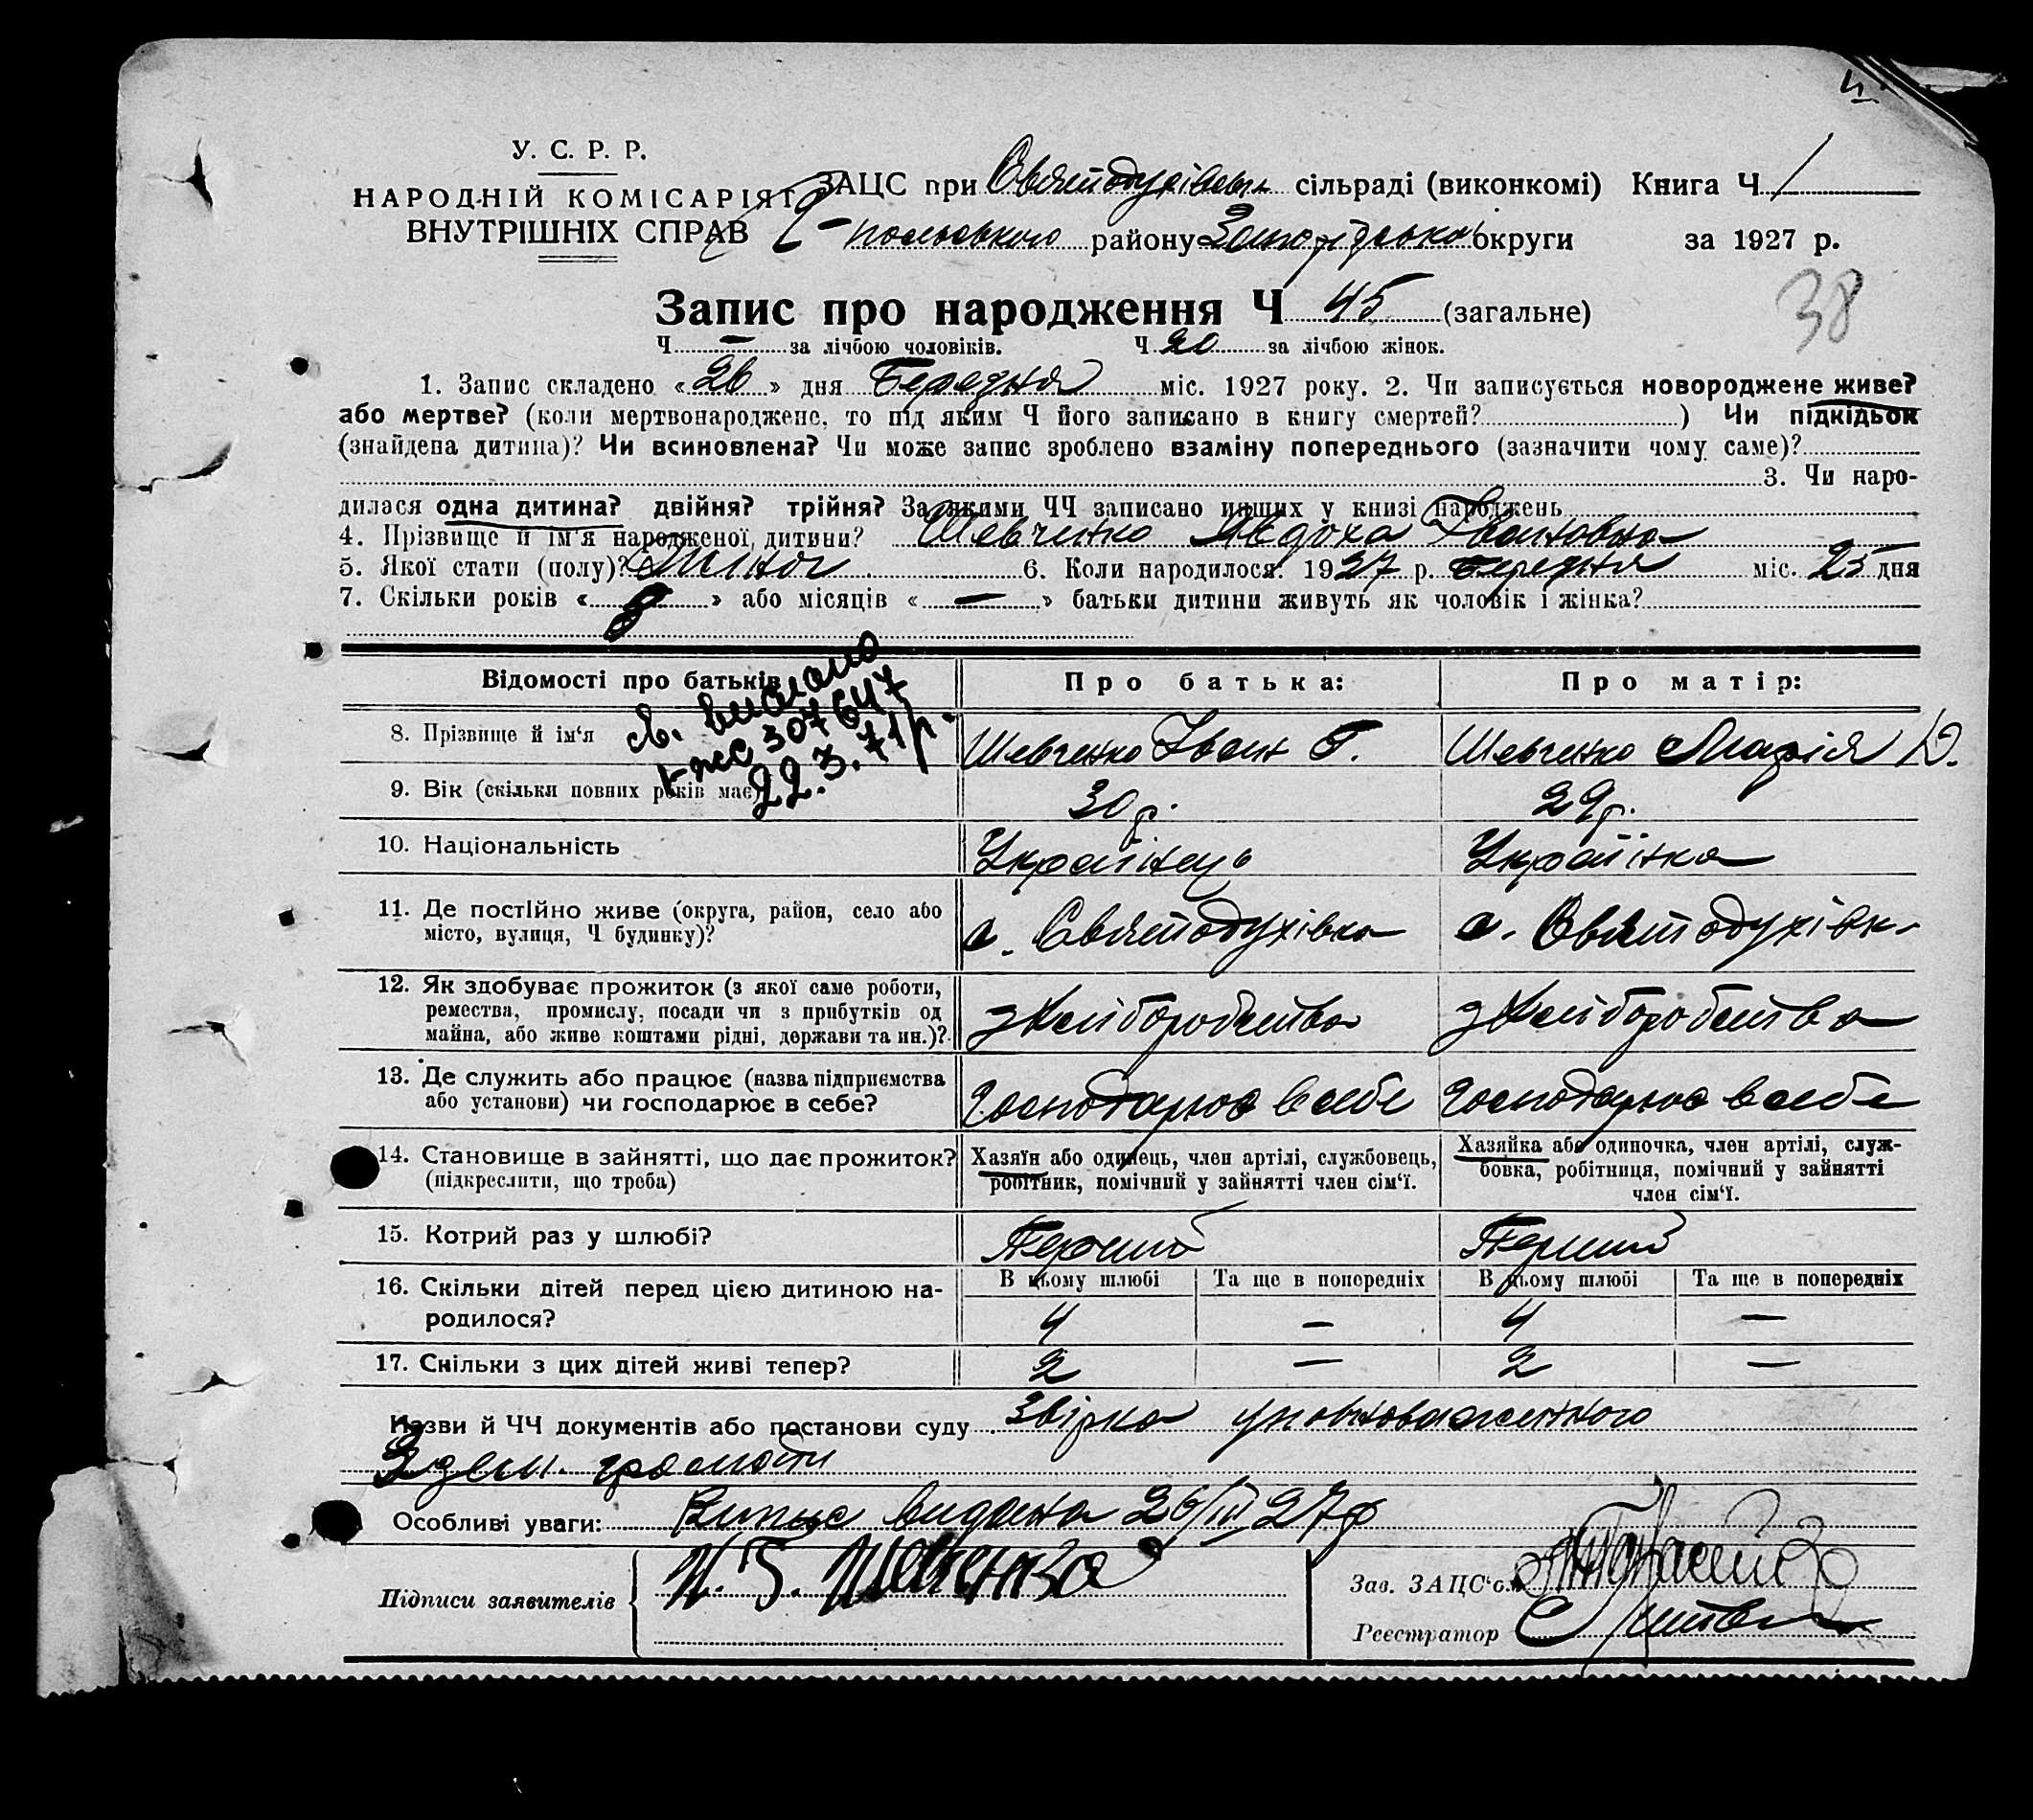 У. С. Р. Р.
НАРОДНІЙ КОМІСАРІЯТ
ВНУТРІШНІХ СПРАВ
ЗАЦС при Святодухівськ сільраді (виконкомі) Книга Ч. 1
польського району Запорізької округи за 1927 р.
38
Запис про народження Ч 45 (загальне)
Ч — за лічбою чоловіків. Ч 20 за лічбою жінок.
1. Запис складено «26» дня Березня міс. 1927 року. 2. Чи записується новороджене живе?
або мертве? (коли мертвонароджене, то під яким Ч його записано в книгу смертей? ) Чи підкідьок
(знайдена дитина)? Чи всиновлена? Чи може запис зроблено взаміну попереднього (зазначити чому саме)?
3. Чи наро-
дилася одна дитина? двійня? трійня? За якими ЧЧ записано инших у книзі народжень
4. Прізвище й ім'я народженої дитини? Шевченко Явдоха Івановна
5. Якої стати (полу)? Жіноч 6. Коли народилося: 1927 р. березня міс. 25 дня
7. Скільки років « 8 » або місяців « — » батьки дитини живуть як чоловік і жінка?
Відомості про батьків Про батька: Про матір:
св. видано
307647
22.3.71р.
8. Прізвище й ім'я Шевченко Іван Г. Шевченко Марія
9. Вік (скільки повних років має) 30 р. 29 р.
10. Національність Українець Українка
11. Де постійно живе (округа, район, село або с. Святодухівка с. Святодухівк
місто, вулиця, Ч будинку)?
12. Як здобуває прожиток (з якої саме роботи,
ремества, промислу, посади чи з прибутків од з хліборобства з хліборобства
майна, або живе коштами рідні, держави та ин.)?
13. Де служить або працює (назва підприємства
або установи) чи господарює в себе? Господарює в себе Господарює в себе
14. Становище в зайнятті, що дає прожиток? Хазяїн або одинець, член артілі, службовець, Хазяйка або одиночка, член артілі, служ-
(підкреслити, що треба) робітник, помічний у зайнятті член сім'ї. бовка, робітниця, помічний у зайнятті
член сім'ї.
15. Котрий раз у шлюбі? Перший Перший
16. Скільки дітей перед цією дитиною на- В цьому шлюбі Та ще в попередніх В цьому шлюбі Та ще в попередніх
родилося? 4 — 4 —
17. Скільки з цих дітей живі тепер? 2 — 2 —
Назви й ЧЧ документів або постанови суду Звірка уповноваженного
Зем. громади
Особливі уваги: Випис видана 26/III 27р
Підписи заявителів И. Г. Шевченко
Зав. ЗАЦС'ом
Реєстратор